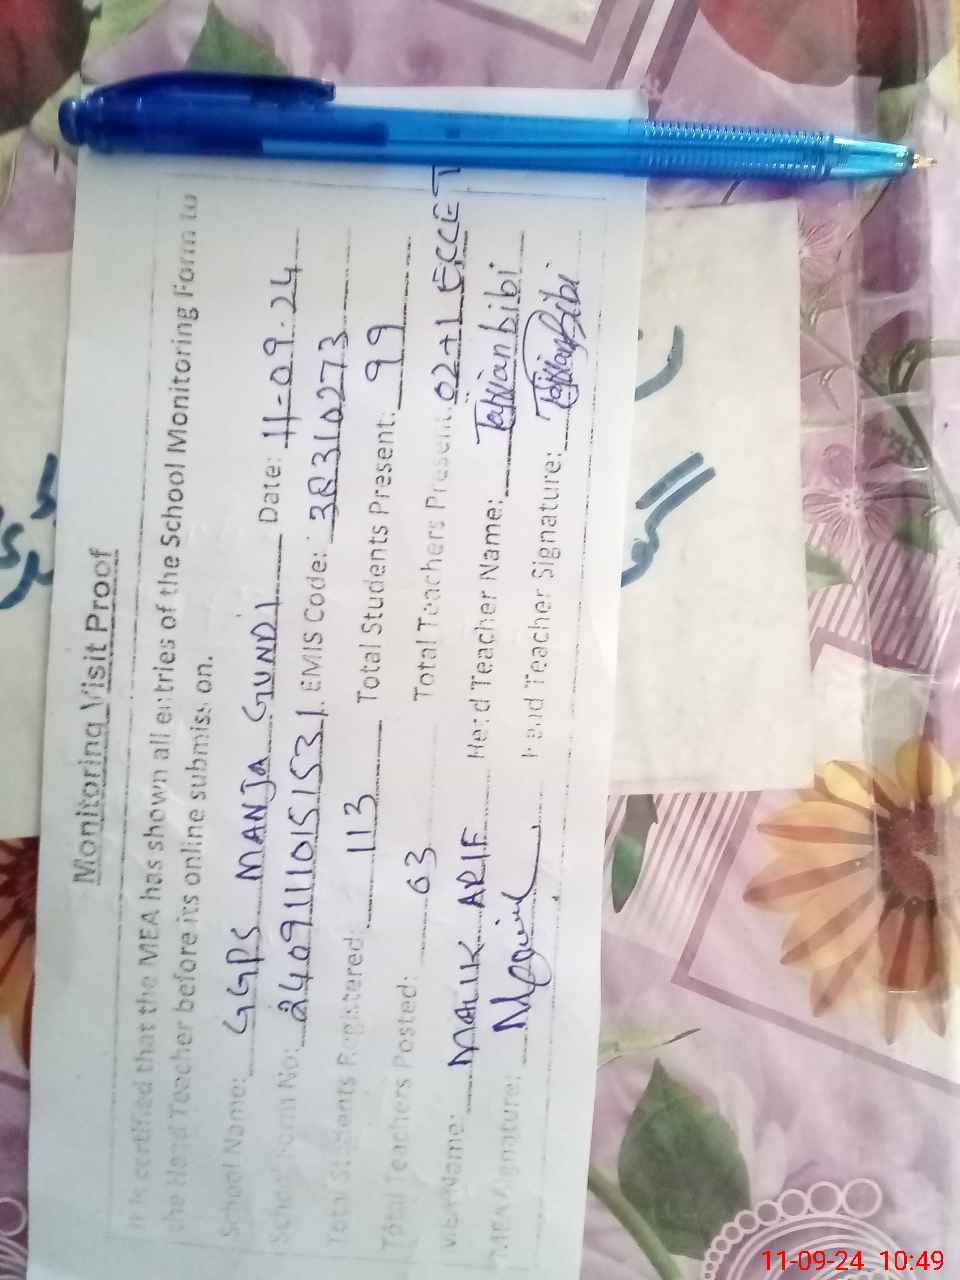 Monitoring Visit Proof
It is certified that the MEA has shown all entries of the School Monitoring Form to
the Head Teacher before its online submission.
School Name: GGPS MANJA GUNDI Date: 11-09-24
School Form No: 24091110151531 EMIS Code: 38310273
Total Students Registered: 113 Total Students Present: 99
Total Teachers Posted: 03 Total Teachers Present: 02+1 ECCE T
MEA Name: MALIK ARIF Head Teacher Name: bibi
MEA Signature: Head Teacher Signature: Bibi
11-09-24 10:49